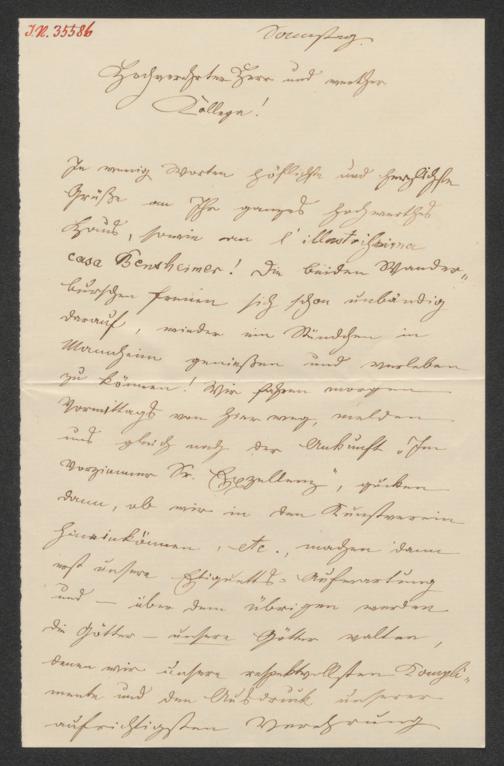 J.N. 35586
Samstag.
Hochverehrter Herr und werther
College!
In wenig Worten höflichste und herzlichste
Grüße an Ihr ganzes hochwerthes
Haus, sowie an l'illustrissima
casa Bensheimer! Die beiden Wander-
burschen freuen sich schon unbändig
darauf, wieder ein Stündchen in
Mannheim genießen und verleben
zu können! Wir fahren morgen
Vormittags von hier weg, melden
uns gleich nach der Ankunft „Im
Vorzimmer Sr. Exzellenz", gucken
dann, ob wir in den Kunstverein
hineinkönnen, etc., machen dann
erst unsere Etiquetts-Aufwartung
und – über dem übrigen werden
die Götter – unsere Götter walten,
denen wir unsere respektvollsten Kompli-
mente und den Ausdruck unserer
aufrichtigsten Verehrung